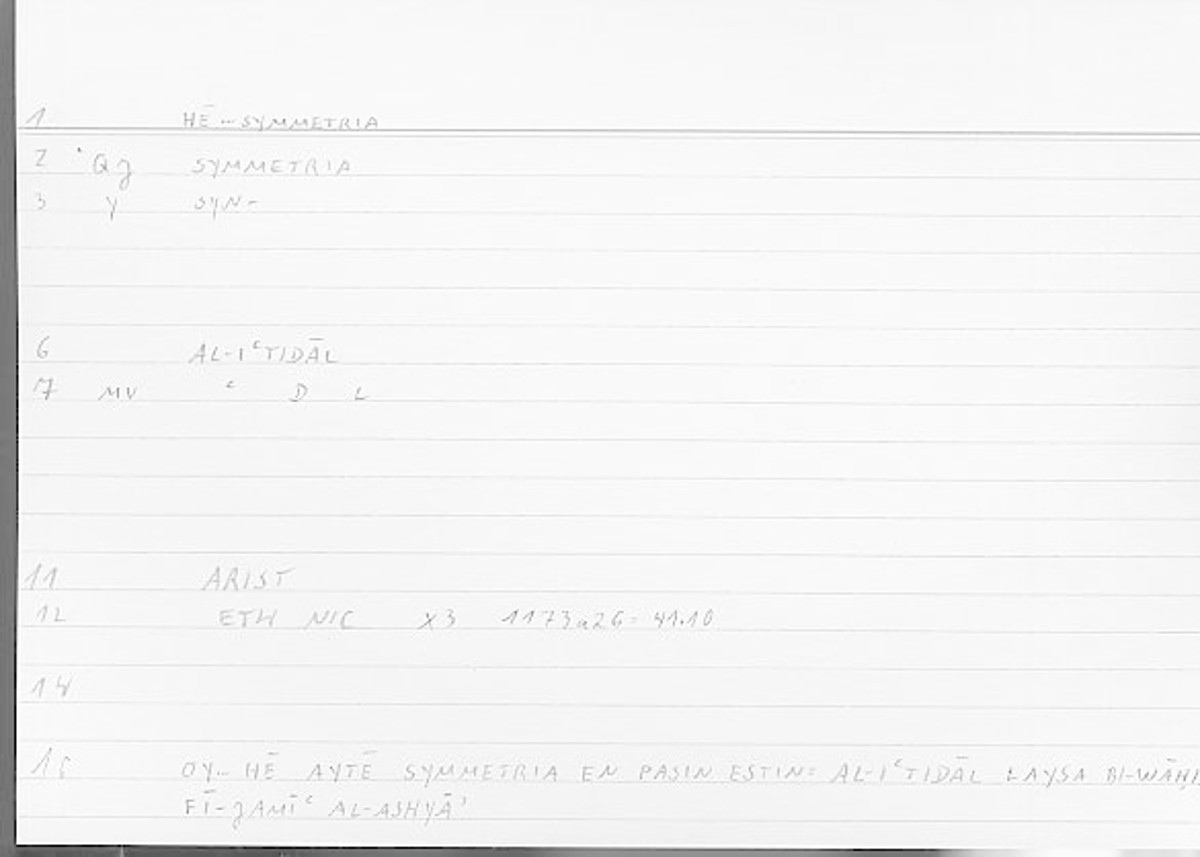 1 HĒ... SYMMETRIA
2 Qʒ SYMMETRIA
3 Y SYN-
6 AL-IᶜTIDĀL
7 MV ᶜ D L
11 ARIST
12 ETH NIC X3 1173a26= 41.10
14
15 OY... HĒ AYTĒ SYMMETRIA EN PASIN ESTIN= AL-IᶜTIDĀL LAYSA BI-WĀḤI
FĪ-ʒAMĪᶜ AL-ASHYĀʾ